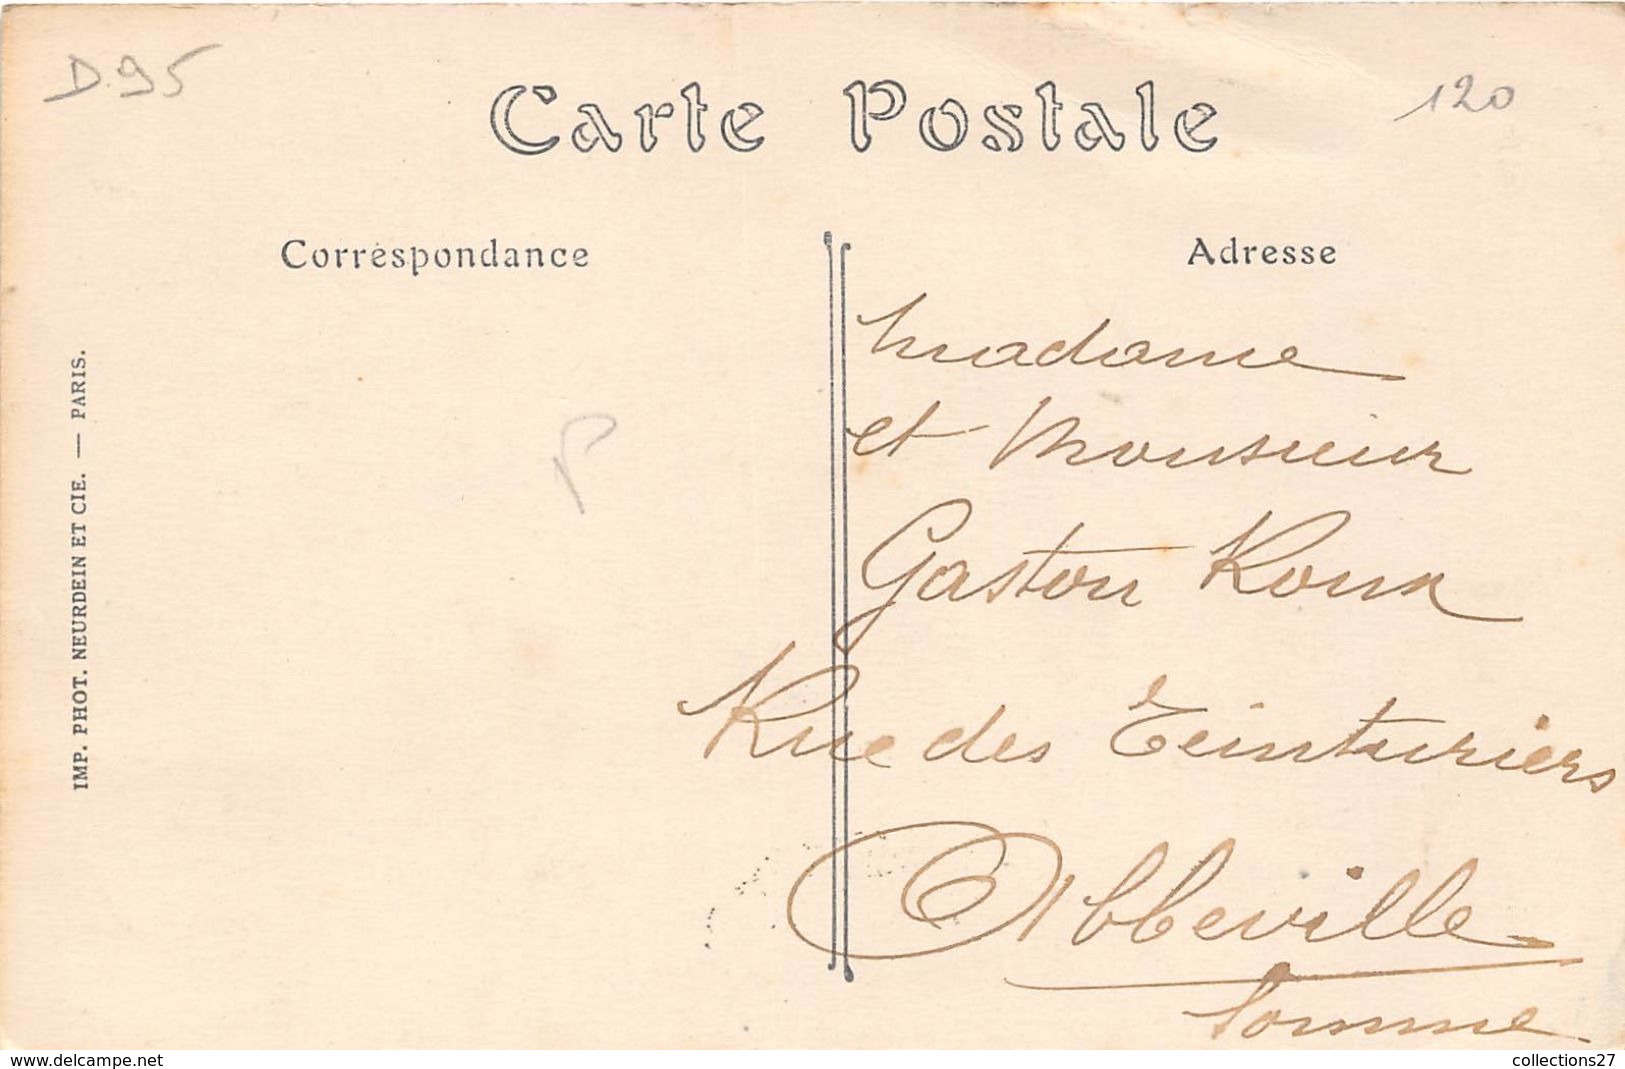 D.95
120
Carte Postale
Corréspondance
Adresse
IMP. PHOT. NEURDEIN ET CIE. — PARIS.
P
Madame
et Monsieur
Gaston Roux
Rue des Teinturiers
Abbeville
Somme
www.delcampe.net
collections27